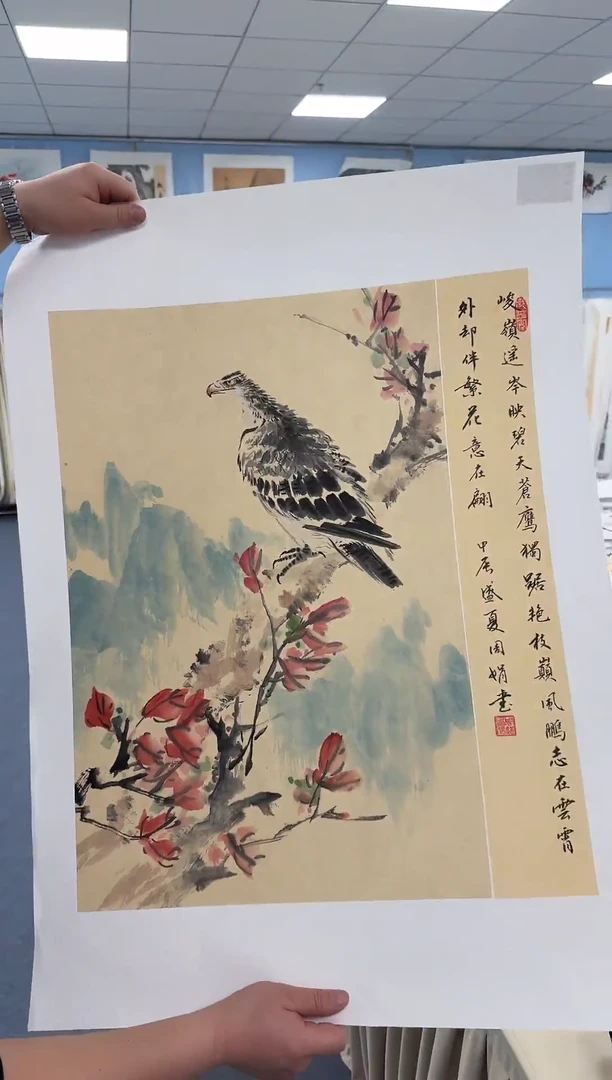 峻嶺遥岑映碧天蒼鹰獨踞艳枝巔風鵬志在雲霄
外却伴繁花意在翩
甲辰盛夏周娟书